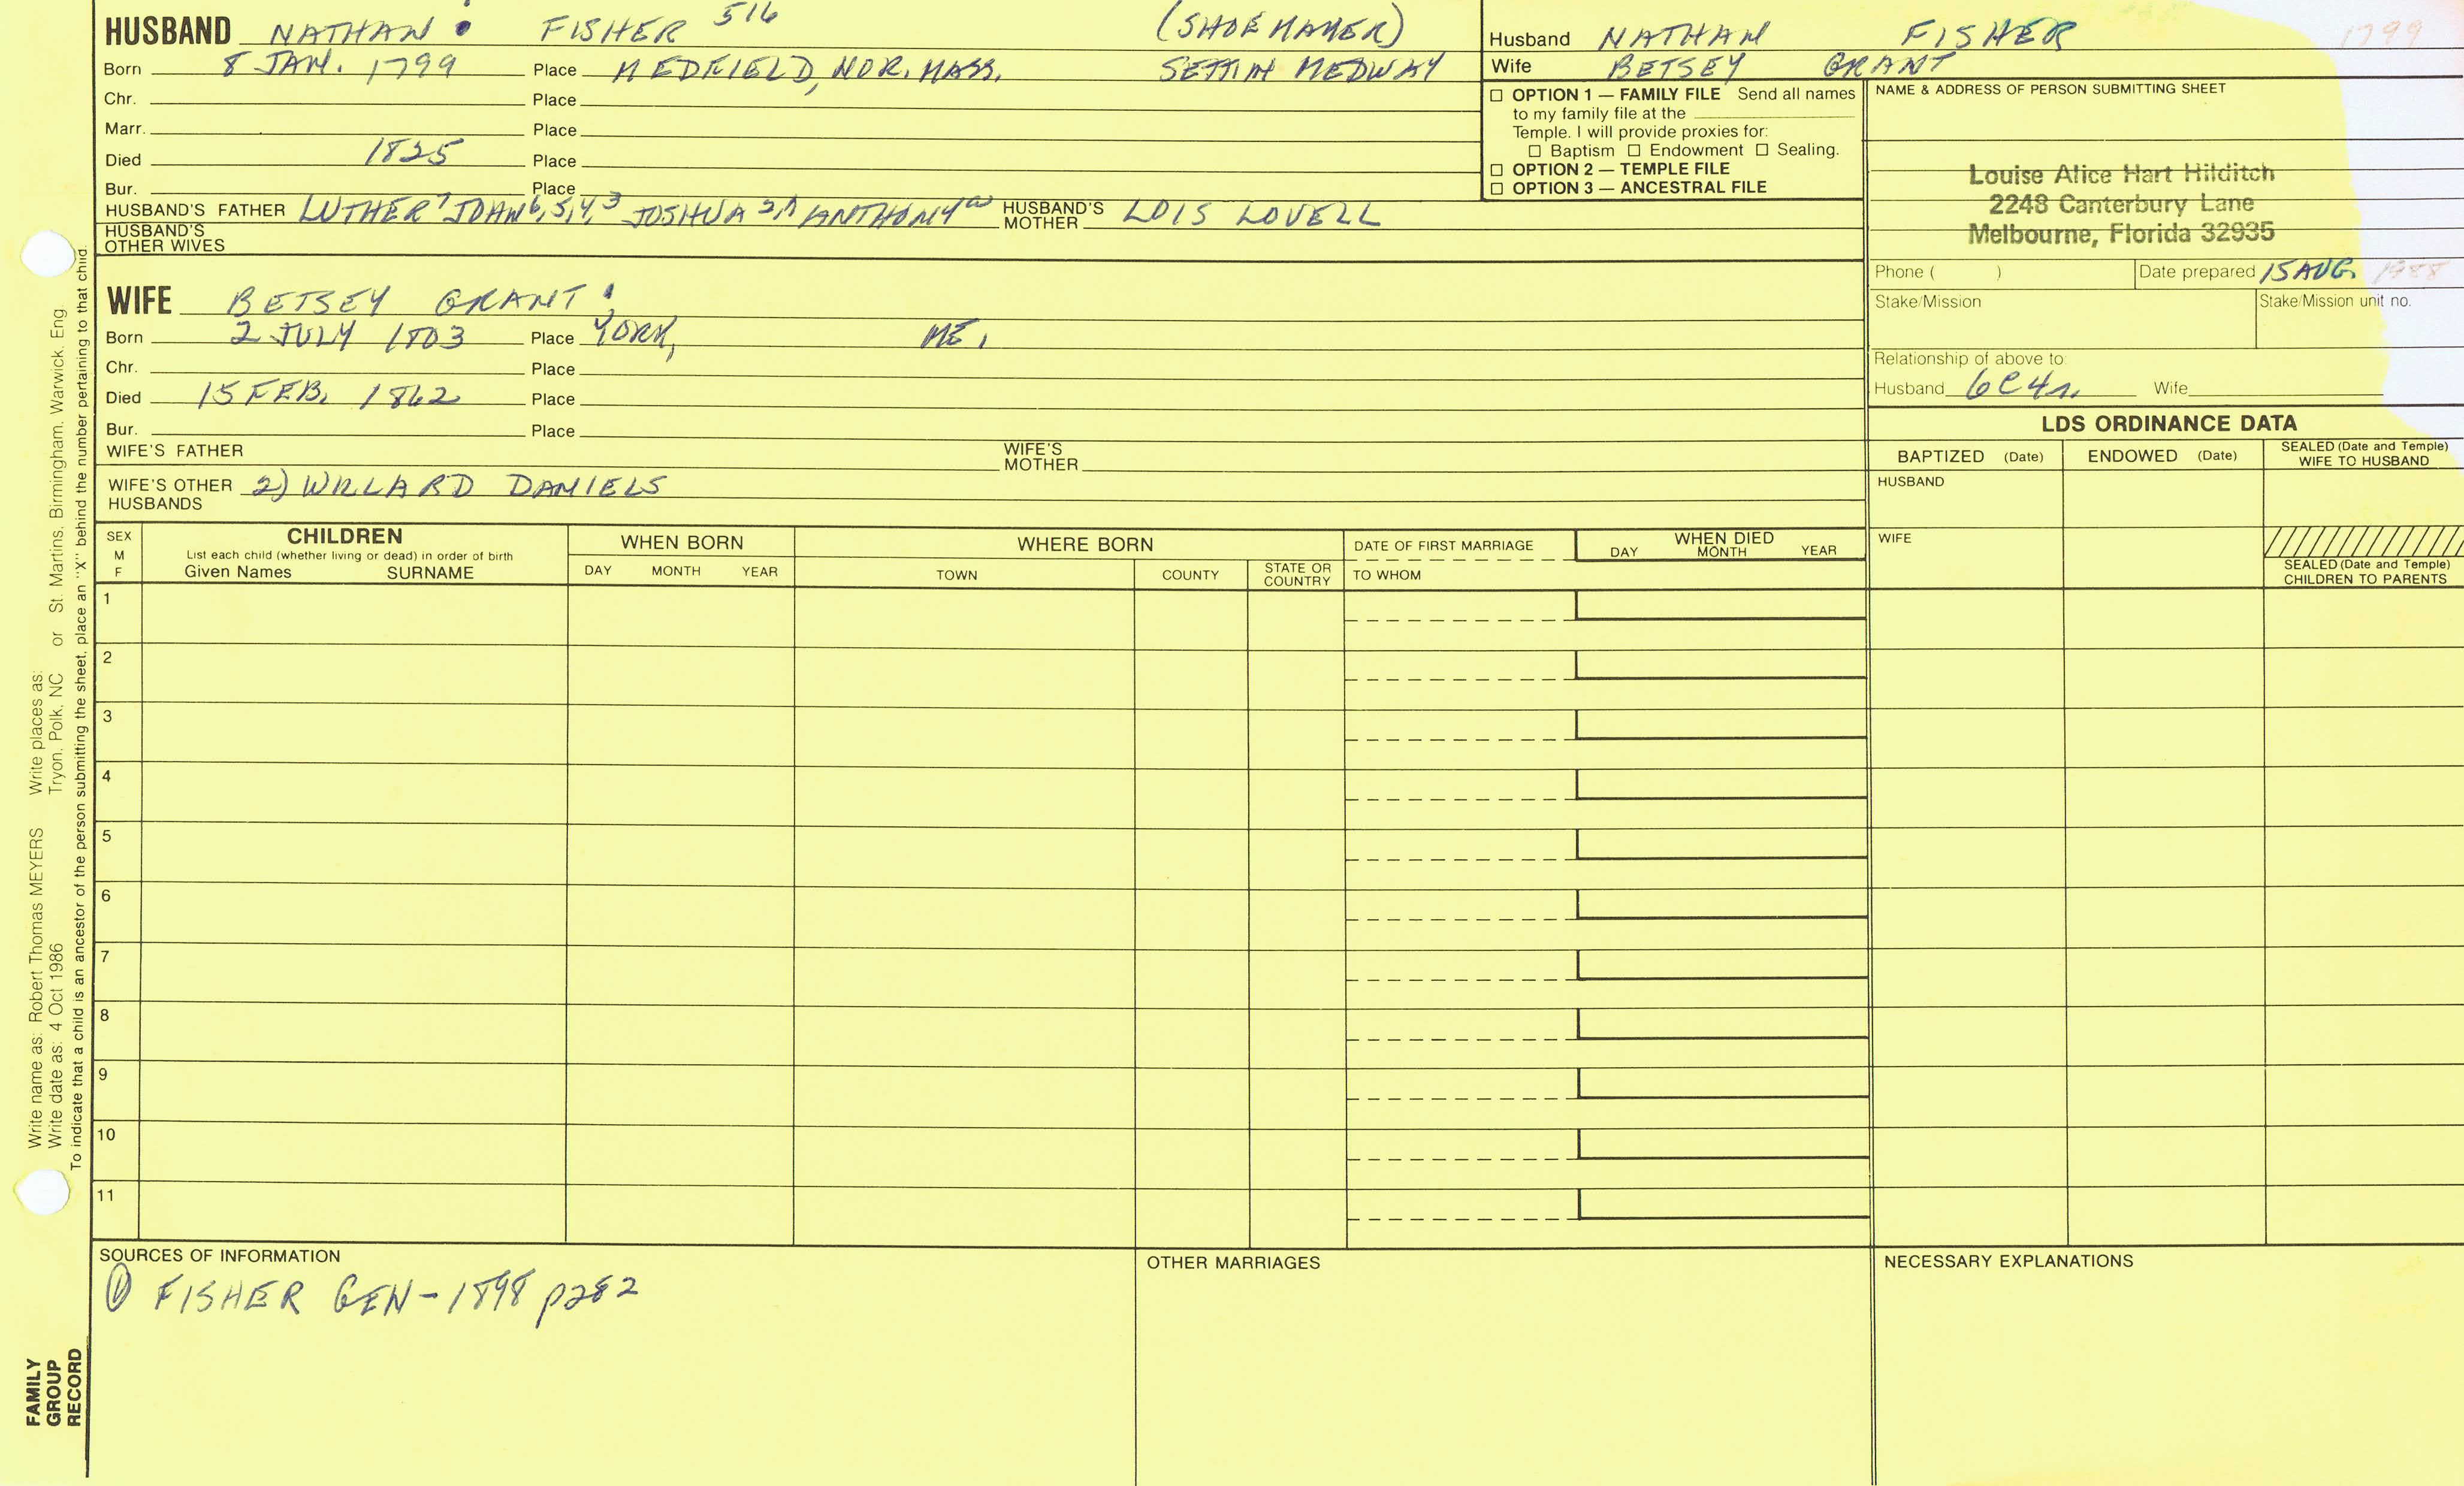 HUSBAND NATHAN FISHER 516 (SHOEMAKER)
Born 8 JAN. 1799 Place MEDFIELD, NOR. MASS. SETT. IN MEDWAY
Chr. Place
Marr. Place
Died 1825 Place
Bur. Place
HUSBAND'S FATHER LUTHER 7 JOHN 6,5,4,3 JOSHUA 2,1 ANTHONY HUSBAND'S MOTHER LOIS LOVELL
HUSBAND'S OTHER WIVES
WIFE BETSEY GRANT
Born 2 JULY 1803 Place YORK, ME.
Chr. Place
Died 15 FEB. 1862 Place
Bur. Place
WIFE'S FATHER WIFE'S MOTHER
WIFE'S OTHER HUSBANDS 2) WILLARD DANIELS
Husband NATHAN FISHER 1799
Wife BETSEY GRANT
☐ OPTION 1 — FAMILY FILE Send all names
to my family file at the
Temple. I will provide proxies for:
☐ Baptism ☐ Endowment ☐ Sealing.
☐ OPTION 2 — TEMPLE FILE
☐ OPTION 3 — ANCESTRAL FILE
NAME & ADDRESS OF PERSON SUBMITTING SHEET
Louise Alice Hart Hilditch
2248 Canterbury Lane
Melbourne, Florida 32935
Phone ( ) Date prepared 15 AUG. 1988
Stake/Mission Stake/Mission unit no.
Relationship of above to:
Husband 6C4r. Wife
LDS ORDINANCE DATA
BAPTIZED (Date) ENDOWED (Date) SEALED (Date and Temple) WIFE TO HUSBAND
HUSBAND
WIFE
SEALED (Date and Temple)
CHILDREN TO PARENTS
SEX M F
CHILDREN
List each child (whether living or dead) in order of birth
Given Names SURNAME
WHEN BORN
DAY MONTH YEAR
WHERE BORN
TOWN COUNTY STATE OR COUNTRY
DATE OF FIRST MARRIAGE
TO WHOM
WHEN DIED
DAY MONTH YEAR
1
2
3
4
5
6
7
8
9
10
11
SOURCES OF INFORMATION
① FISHER GEN-1898 p282
OTHER MARRIAGES
NECESSARY EXPLANATIONS
Write name as: Robert Thomas MEYERS Write places as:
Write date as: 4 Oct 1986 Tryon, Polk, NC or St. Martins, Birmingham, Warwick, Eng
To indicate that a child is an ancestor of the person submitting the sheet, place an "X" behind the number pertaining to that child.
FAMILY
GROUP
RECORD